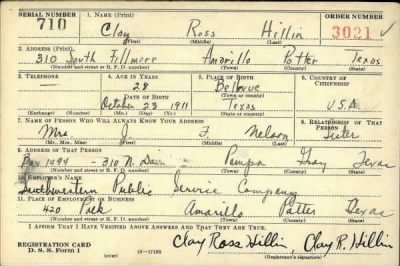 SERIAL NUMBER 1. NAME (Print) ORDER NUMBER
710 Clay Ross Hillin 3021
(First) (Middle) (Last)
2. ADDRESS (Print)
310 South Fillmore Amarillo Potter Texas
(Number and street or R. F. D. number) (Town) (County) (State)
3. TELEPHONE 4. AGE IN YEARS 5. PLACE OF BIRTH 6. COUNTRY OF CITIZENSHIP
— 28 Bellevue
DATE OF BIRTH (Town or county)
October 28 1911 Texas U.S.A.
(Exchange) (Number) (Mo.) (Day) (Yr.) (State or country)
7. NAME OF PERSON WHO WILL ALWAYS KNOW YOUR ADDRESS 8. RELATIONSHIP OF THAT PERSON
Mrs. J F Nelson Sister
(Mr., Mrs., Miss) (First) (Middle) (Last)
9. ADDRESS OF THAT PERSON
Box 1494 - 310 N. Pampa Gray Texas
(Number and street or R. F. D. number) (Town) (County) (State)
10. EMPLOYER'S NAME
Southwestern Public Service Company
11. PLACE OF EMPLOYMENT OR BUSINESS
420 Polk Amarillo Potter Texas
(Number and street or R. F. D. number) (Town) (County) (State)
I AFFIRM THAT I HAVE VERIFIED ABOVE ANSWERS AND THAT THEY ARE TRUE.
REGISTRATION CARD Clay Ross Hillin, Clay R. Hillin
D. S. S. Form 1 16-17105 (Registrant's signature)